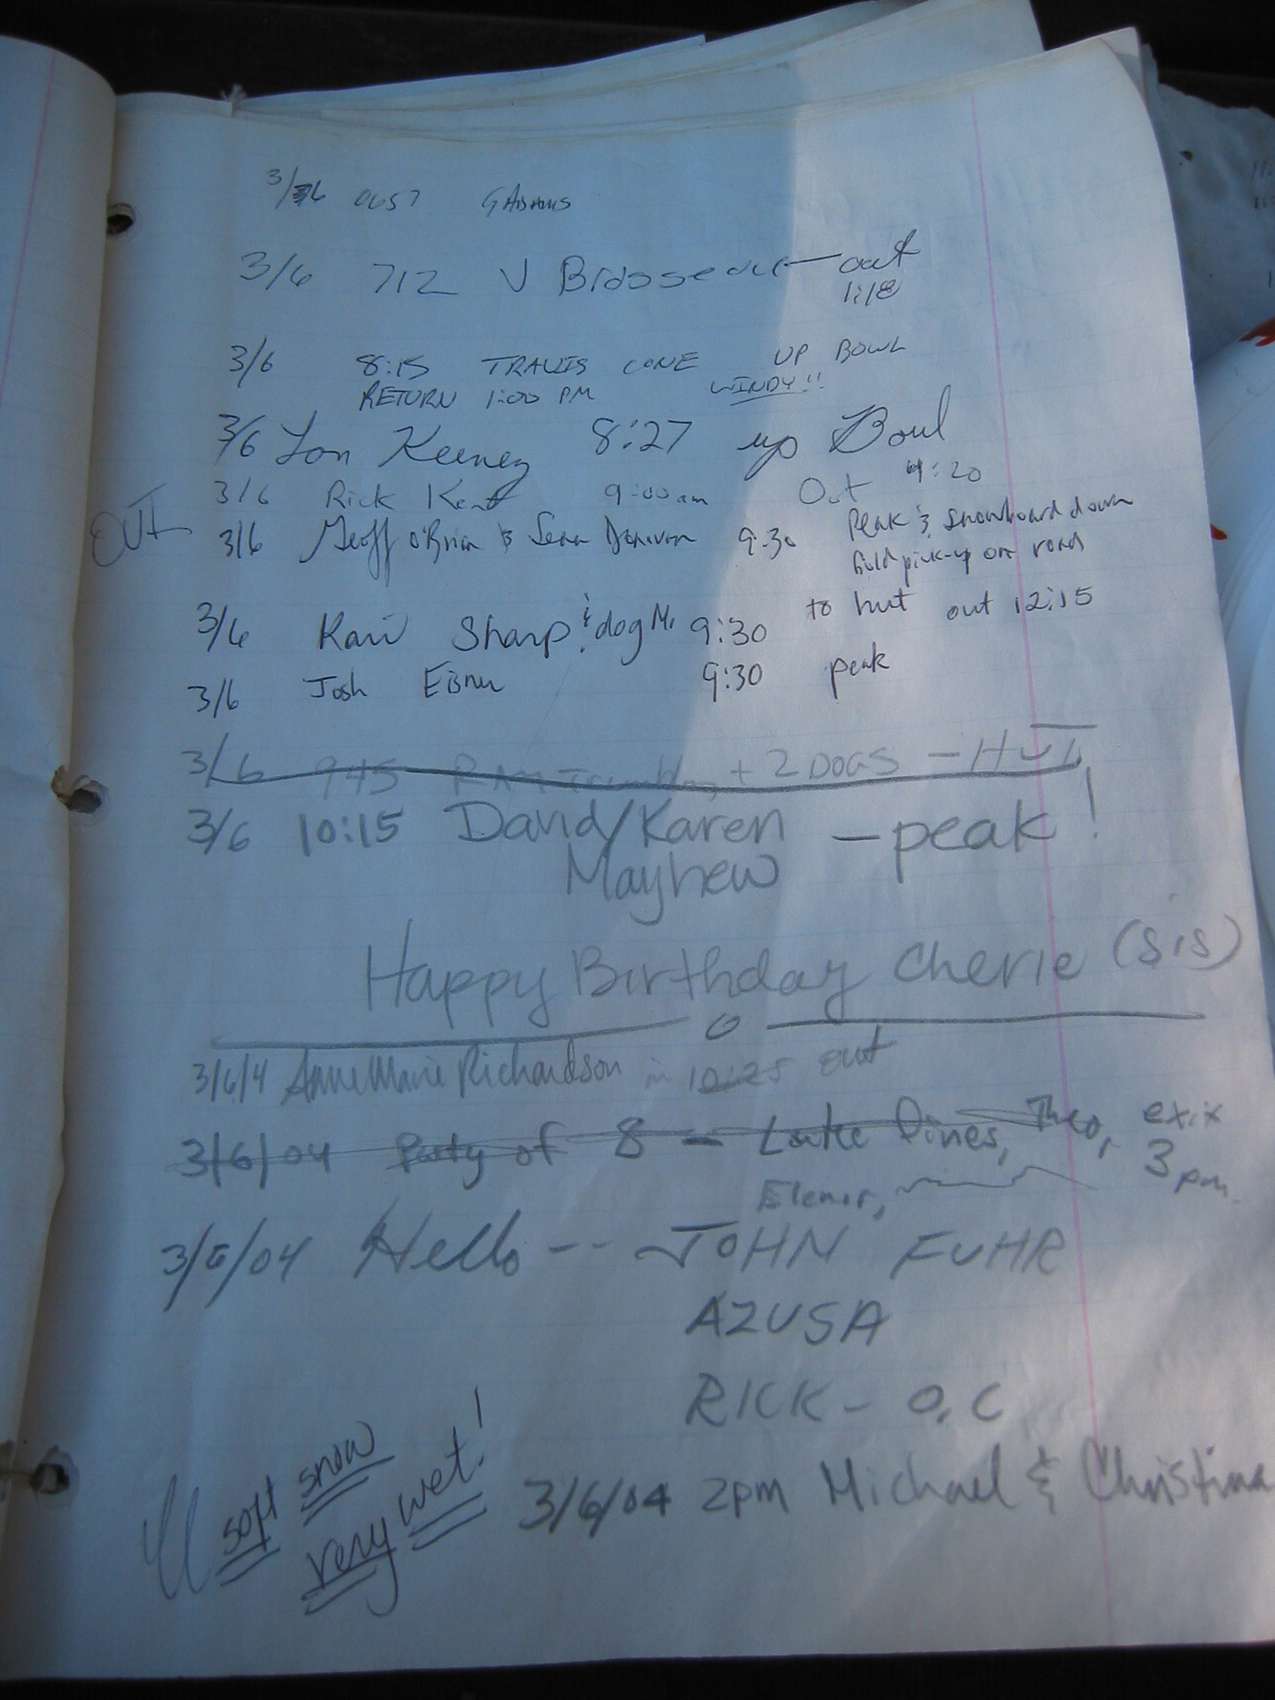 3/6 0657 GADAMS
3/6 712 J out
1:18
3/6 8:15 TRAVIS CONE UP BOWL
RETURN 1:00 PM WINDY!!
3/6 Lon Keeney 8:27 up Bowl
3/6 Rick Kent 9:00 am Out 4:20
OUT 3/6 Geoff O'Brian & Sean Donovan 9:30 Peak & snowboard down
pick-up on road
3/6 Kari Sharp & dog M. 9:30 to hut out 12:15
3/6 Josh 9:30 peak
3/6 945 + 2 DOGS - HUT
3/6 10:15 David/Karen - peak!
Mayhew
Happy Birthday Cherie (sis)
3/6/4 AnneMarie Richardson in 10:25 out
3/6/04 Party of 8 - Theo, exit
Elenor, 3pm.
3/6/04 Hello -- JOHN FUHR
AZUSA
RICK - O.C
soft snow
very wet!
3/6/04 2pm Michael & Christina